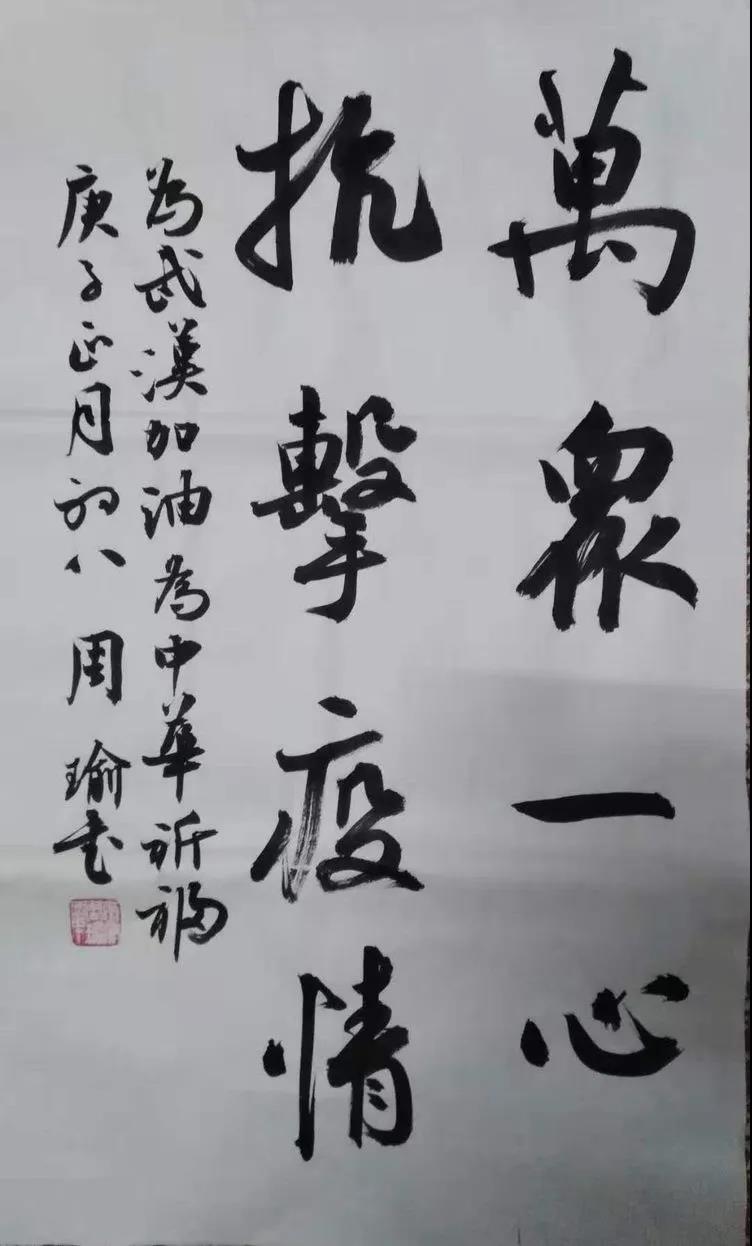 萬眾一心
抗擊疫情
為武漢加油為中華祈福
庚子正月初八周瑜書